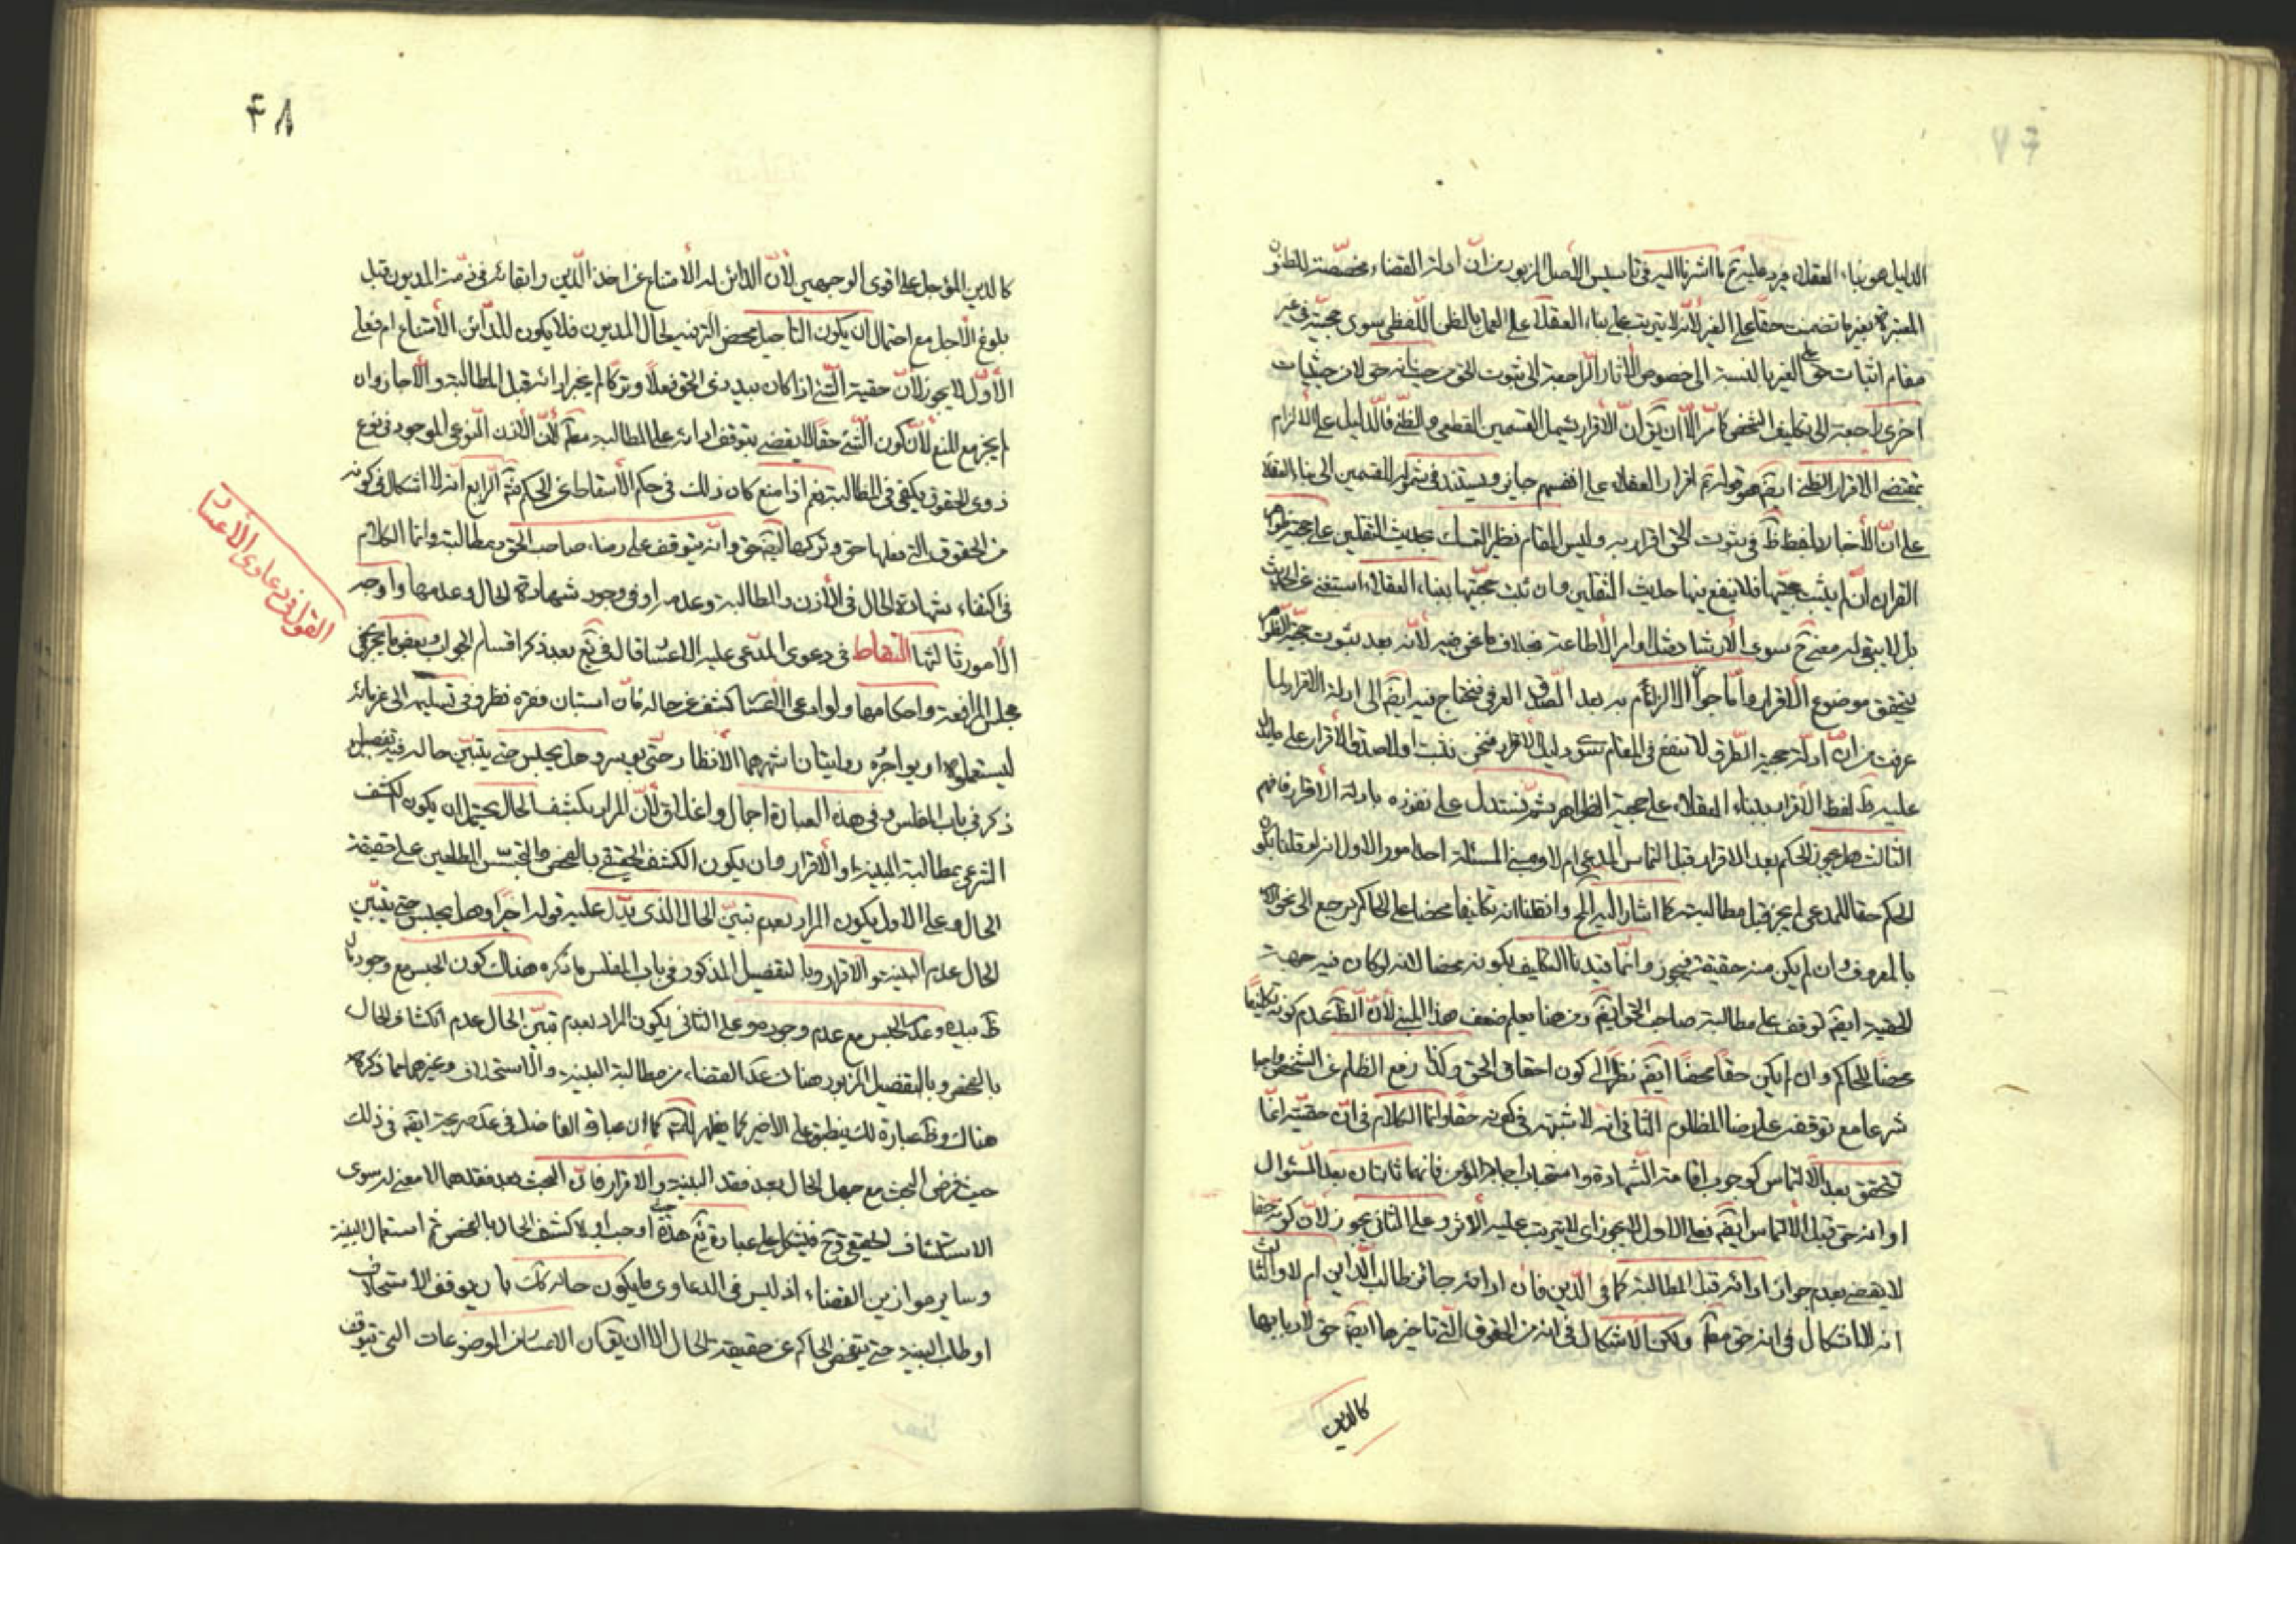 الدليل هو بناء العقلاء فيرد عليه ثم ما اشرنا اليه في تاسيس الاصل المزبور من ان ادلة القضاء مخصصة للظنون
المعتبرة بغير ما تضمنت حقا على الغير لانه لا يترتب على بناء العقلاء على العمل بالظن اللفظي سوى حجيته في غير
مقام اثبات حق على الغير بالنسبة الى خصوص الآثار الراجعة الى ثبوت الحق من حيث انه حق لا من حيثيات
اخرى راجعة الى تكليف الشخص كما مر الا ان يق ان الاقرار يشمل القسمين القطعي والظني فالدليل على الالزام
بمقتضى الاقرار الظني ايضا هو قوله اقرار العقلاء على انفسهم جايز ويستند في شموله للقسمين الى بناء العقلاء
على ان الأخبار بلفظ ظ في ثبوت الحق اقرار به وليس المقام نظير التمسك بحديث الثقلين على حجية ظواهر
القران ان لم يثبت حجيتها فلا ينفع فيها حديث الثقلين وان ثبت حجيتها ببناء العقلاء استغنى عن الحديث
بل لا يبقى له معنى ح سوى الارشاد مثل اوامر الاطاعة بخلاف ما نحن فيه لأنه بعد ثبوت حجية الظواهر
يتحقق موضوع الاقرار واما جواز الالزام به بعد الصدق العرفي فيحتاج فيه ايضا الى ادلة الاقرار لما
عرفت من ان ادلة حجية الطرق لا تنفع في المقام سوى دليل الاقرار فنحن نثبت اولا صدق الأقرار على ما دل
عليه ظ لفظ الاقرار ببناء العقلاء على حجية الظواهر ثم نستدل على نفوذه بادلة الاقرار فافهم
الثالث هل يجوز الحكم بعد الاقرار قبل التماس المدعي ام لا ومبنى المسئلة احد امور الاول انه لو قلنا بكون
الحكم حقا للمدعي لم يجز قبل مطالبته كما اشار اليه المح وان قلنا انه تكليفا محضا على الحاكم يرجع الى نحو الامر
بالمعروف وان لم يكن منه حقيقة فيجوز وانما قيدنا التكليف بكونه محضا لانه لو كان فيه جهة
الحقية ايضا لوقف على مطالبة صاحب الحق ايضا ومن هنا يعلم ضعف هذا المبنى لأن الظ عدم كونه تكليفا
محضا للحاكم وان لم يكن حقا محضا ايضا نظرا الى كون احقاق الحق وكذا رفع الظلم عن الشخص واجبا
شرعا مع توقفه على رضا المظلوم الثاني انه لا شبهة في كونه حقا وانما الكلام في ان حقيته انما
تتحقق بعد الالتماس كوجوب اقامة الشهادة واستحباب اجابة المؤمن فانهما ثابتان بعد السئوال
او انه حق قبل الالتماس ايضا فعلى الاول لا يجوز اي لا يترتب عليه الاثر وعلى الثاني يجوز لأن كونه حقا
لا يقضي بعدم جواز ادائه قبل المطالبة كما في الدين فان ادائه جائز طالب الداين ام لا والثالث
انه لا اشكال في انه حق مط ولكن الاشكال في انه من الحقوق التي تاخيرها ايضا حق لاربابها
كالدين
٤٨
كالدين المؤجل على اقوى الوجهين لأن الدائن له الامتناع عن اخذ الدين وابقائه في ذمة المديون قبل
بلوغ الأجل مع احتمال ان يكون التاجيل محض الترفيه لحال المديون فلا يكون للدائن الامتناع ام فعلى
الأول لا يجوز لأن حقية الشئ اذا كان بيد ذي الحق فعلا وتركا لم يجز ادائه قبل المطالبة والا جاز وان
لم يجز مع المنع لأن كون الشئ حقا لا يقضي بتوقف ادائه على المطالبة مط لأن الأذن النوعي الموجود في نوع
ذوي الحقوق يكفي في المطالبة نعم اذا منع كان ذلك في حكم الأسقاط عن الحكم الرابع انه لا اشكال في كونه
من الحقوق التي فعلها حق وتركها ايضا حق وانه يتوقف على رضاء صاحب الحق ومطالبته وانما الكلام
في اكتفاء شهادة الحال في الأذن والمطالبة وعدمه او في وجود شهادة الحال وعدمها واوجه
الأمور ثالثها التقاط في دعوى المدعى عليه الاعسار قال في يع بعد ذكر اقسام الجواب وبعض ما يجري في
القول في دعاوى الأعسار
مجلس المرافعة واحكامها ولو ادعى الاعسار كشف عن حاله فان استبان فقره نظر وفي تسليمه الى غرمائه
ليستعملوه او يواجروه روايتان اشهرهما الأنظار حتى يوسر وهل يحبس حتى يتبين حاله فيه تفصيل
ذكر في باب المفلس وفي هذه العبارة اجمال واغلاق لأن المراد بكشف الحال يحتمل ان يكون الكشف
الشرعي بمطالبة البينة او الاقرار وان يكون الكشف الحقيقي بالفحص والتجسس المطلعين على حقيقة
الحال وعلى الاول يكون المراد بعدم تبين الحال الذي يدل عليه قوله اخيرا وهل يحبس حتى يتبين
الحال عدم البينة والاقرار وبالتفصيل المذكور في باب المفلس ما ذكره هناك كون الحبس مع وجود مال
ظ بيده وعدم الحبس مع عدم وجوده وعلى الثاني يكون المراد بعدم تبين الحال عدم انكشاف الحال
بالفحص وبالتفصيل المزبور هناك عدا القضاء من مطالبة البينة والاستحلاف وغيرهما مما ذكره
هناك وظ عبارة لك ينطبق على الاخير كما يظهر للمتامل كما ان عبارة الفاضل في عد صريحة ايضا في ذلك
حيث فرض البحث مع جهل الحال بعد فقد البينة والاقرار فان البحث بعد فقدهما لا معنى له سوى
الاستكشاف الحقيقي وح فيشكل على عبارة يع هذه اوجب اولا كشف الحال بالفحص ثم استعمال البينة
وساير موازين القضاء اذ ليس في الدعاوى ما يكون حاله كك بان يوقف الاستحلاف
او طلب البينة حتى يتفحص الحاكم عن حقيقة الحال الا ان يق ان الاعسار من الموضوعات التي يتوقف